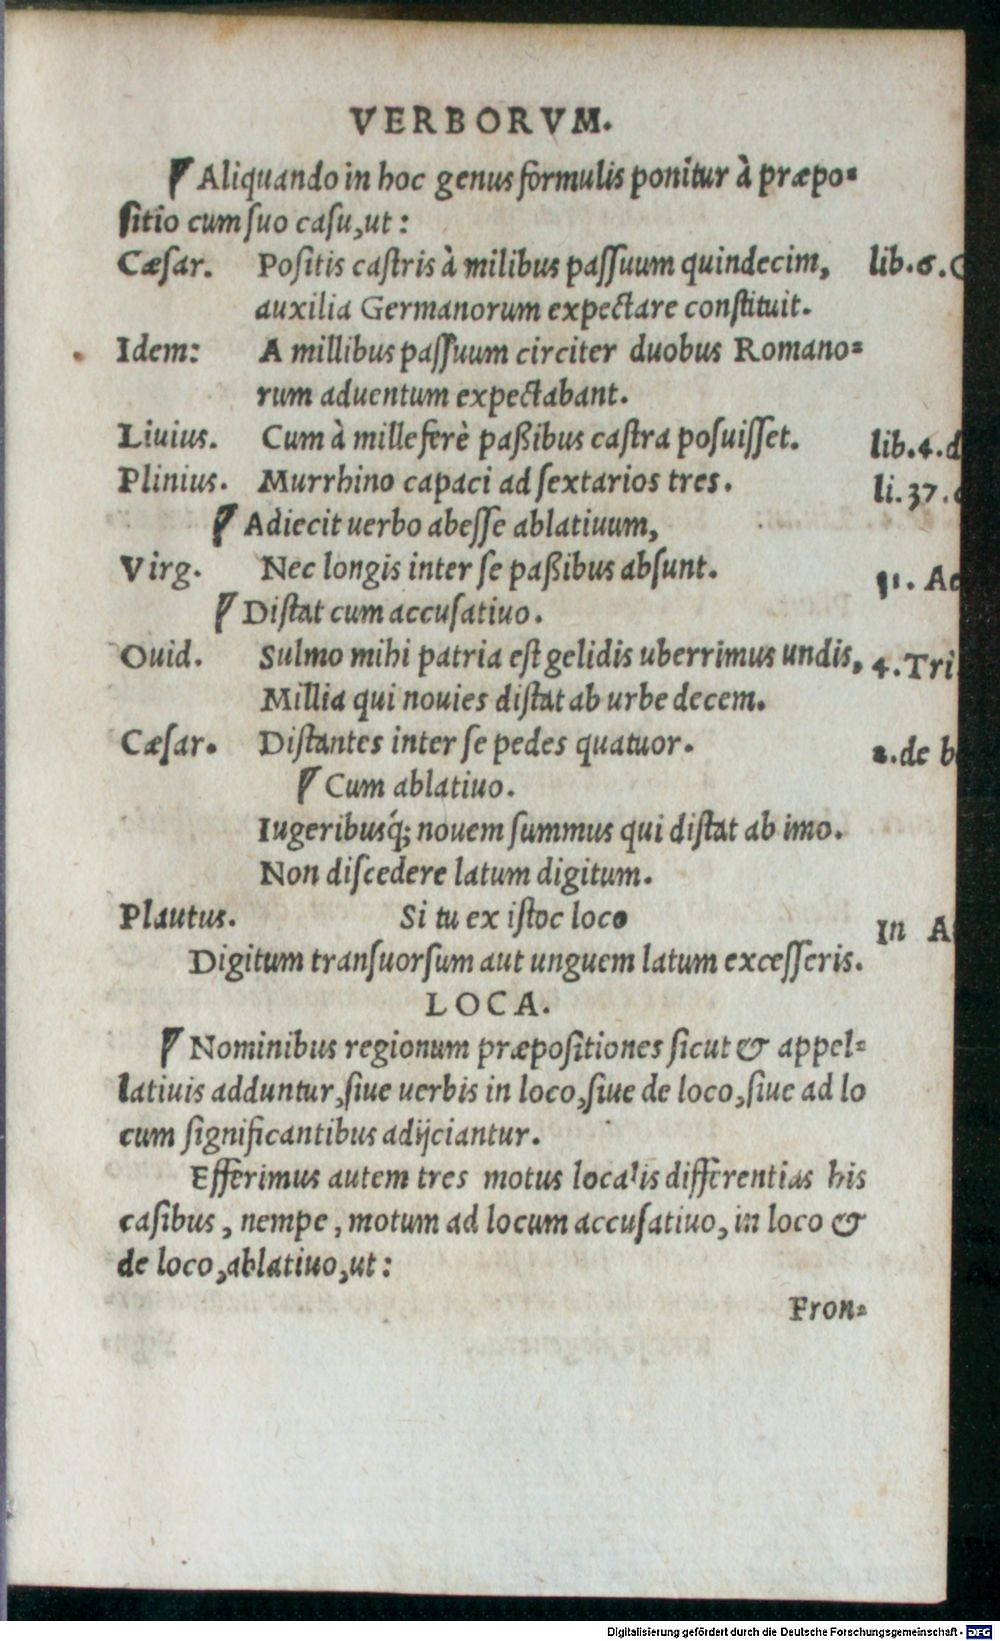 VERBORVM.
¶ Aliquando in hoc genus formulis ponitur à præpo=
sitio cum suo casu, ut:
Cæsar. Positis castris à milibus passuum quindecim, lib.6.
auxilia Germanorum expectare constituit.
Idem: A millibus passuum circiter duobus Romano=
rum aduentum expectabant.
Liuius. Cum à mille ferè paßibus castra posuisset. lib.4.d
Plinius. Murrhino capaci ad sextarios tres. li.37.
¶ Adiecit uerbo abesse ablatiuum,
Virg. Nec longis inter se paßibus absunt. 11. Ae
¶ Distat cum accusatiuo.
Ouid. Sulmo mihi patria est gelidis uberrimus undis, 4.Tri
Millia qui nouies distat ab urbe decem.
Cæsar. Distantes inter se pedes quatuor. 2.de b
¶ Cum ablatiuo.
Iugeribusq́; nouem summus qui distat ab imo.
Non discedere latum digitum.
Plautus. Si tu ex istoc loco In A
Digitum transuorsum aut unguem latum excesseris.
LOCA.
¶ Nominibus regionum præpositiones sicut & appel=
latiuis adduntur, siue uerbis in loco, siue de loco, siue ad lo
cum significantibus adijciantur.
Efferimus autem tres motus localis differentias his
casibus, nempe, motum ad locum accusatiuo, in loco &
de loco, ablatiuo, ut:
Fron=
Digitalisierung gefördert durch die Deutsche Forschungsgemeinschaft - DFG